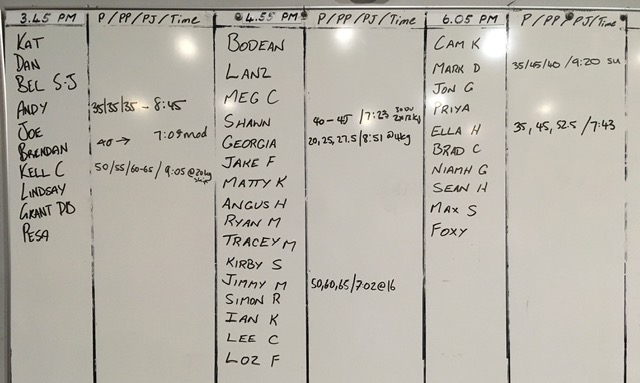 3.45 PM P/PP/PJ/Time 4.55 PM P/PP/PJ/Time 6.05 PM P/PP/PJ/Time
KAT
DAN
BEL S-J
ANDY 35/35/35 - 8:45
JOE
BRENDAN 40→ 7:09 mod
KELL C 50/55/60-65/9:05 @20kg
LINDSAY
GRANT DB
PESA
BODEAN
LANZ
MEG C
SHAWN 40-45 /7:23
GEORGIA 20,25,27.5/8:51 @4kg
JAKE F
MATTY K
ANGUS H
RYAN M
TRACEY M
KIRBY S
JIMMY M 50,60,65/7:02@16
SIMON R
IAN K
LEE C
LOZ F
CAM K
MARK D 35/45/40 /9:20 su
JON G
PRIYA
ELLA H 35, 45, 52.5 /7:43
BRAD C
NIAMH G
SEAN H
MAX S
FOXY